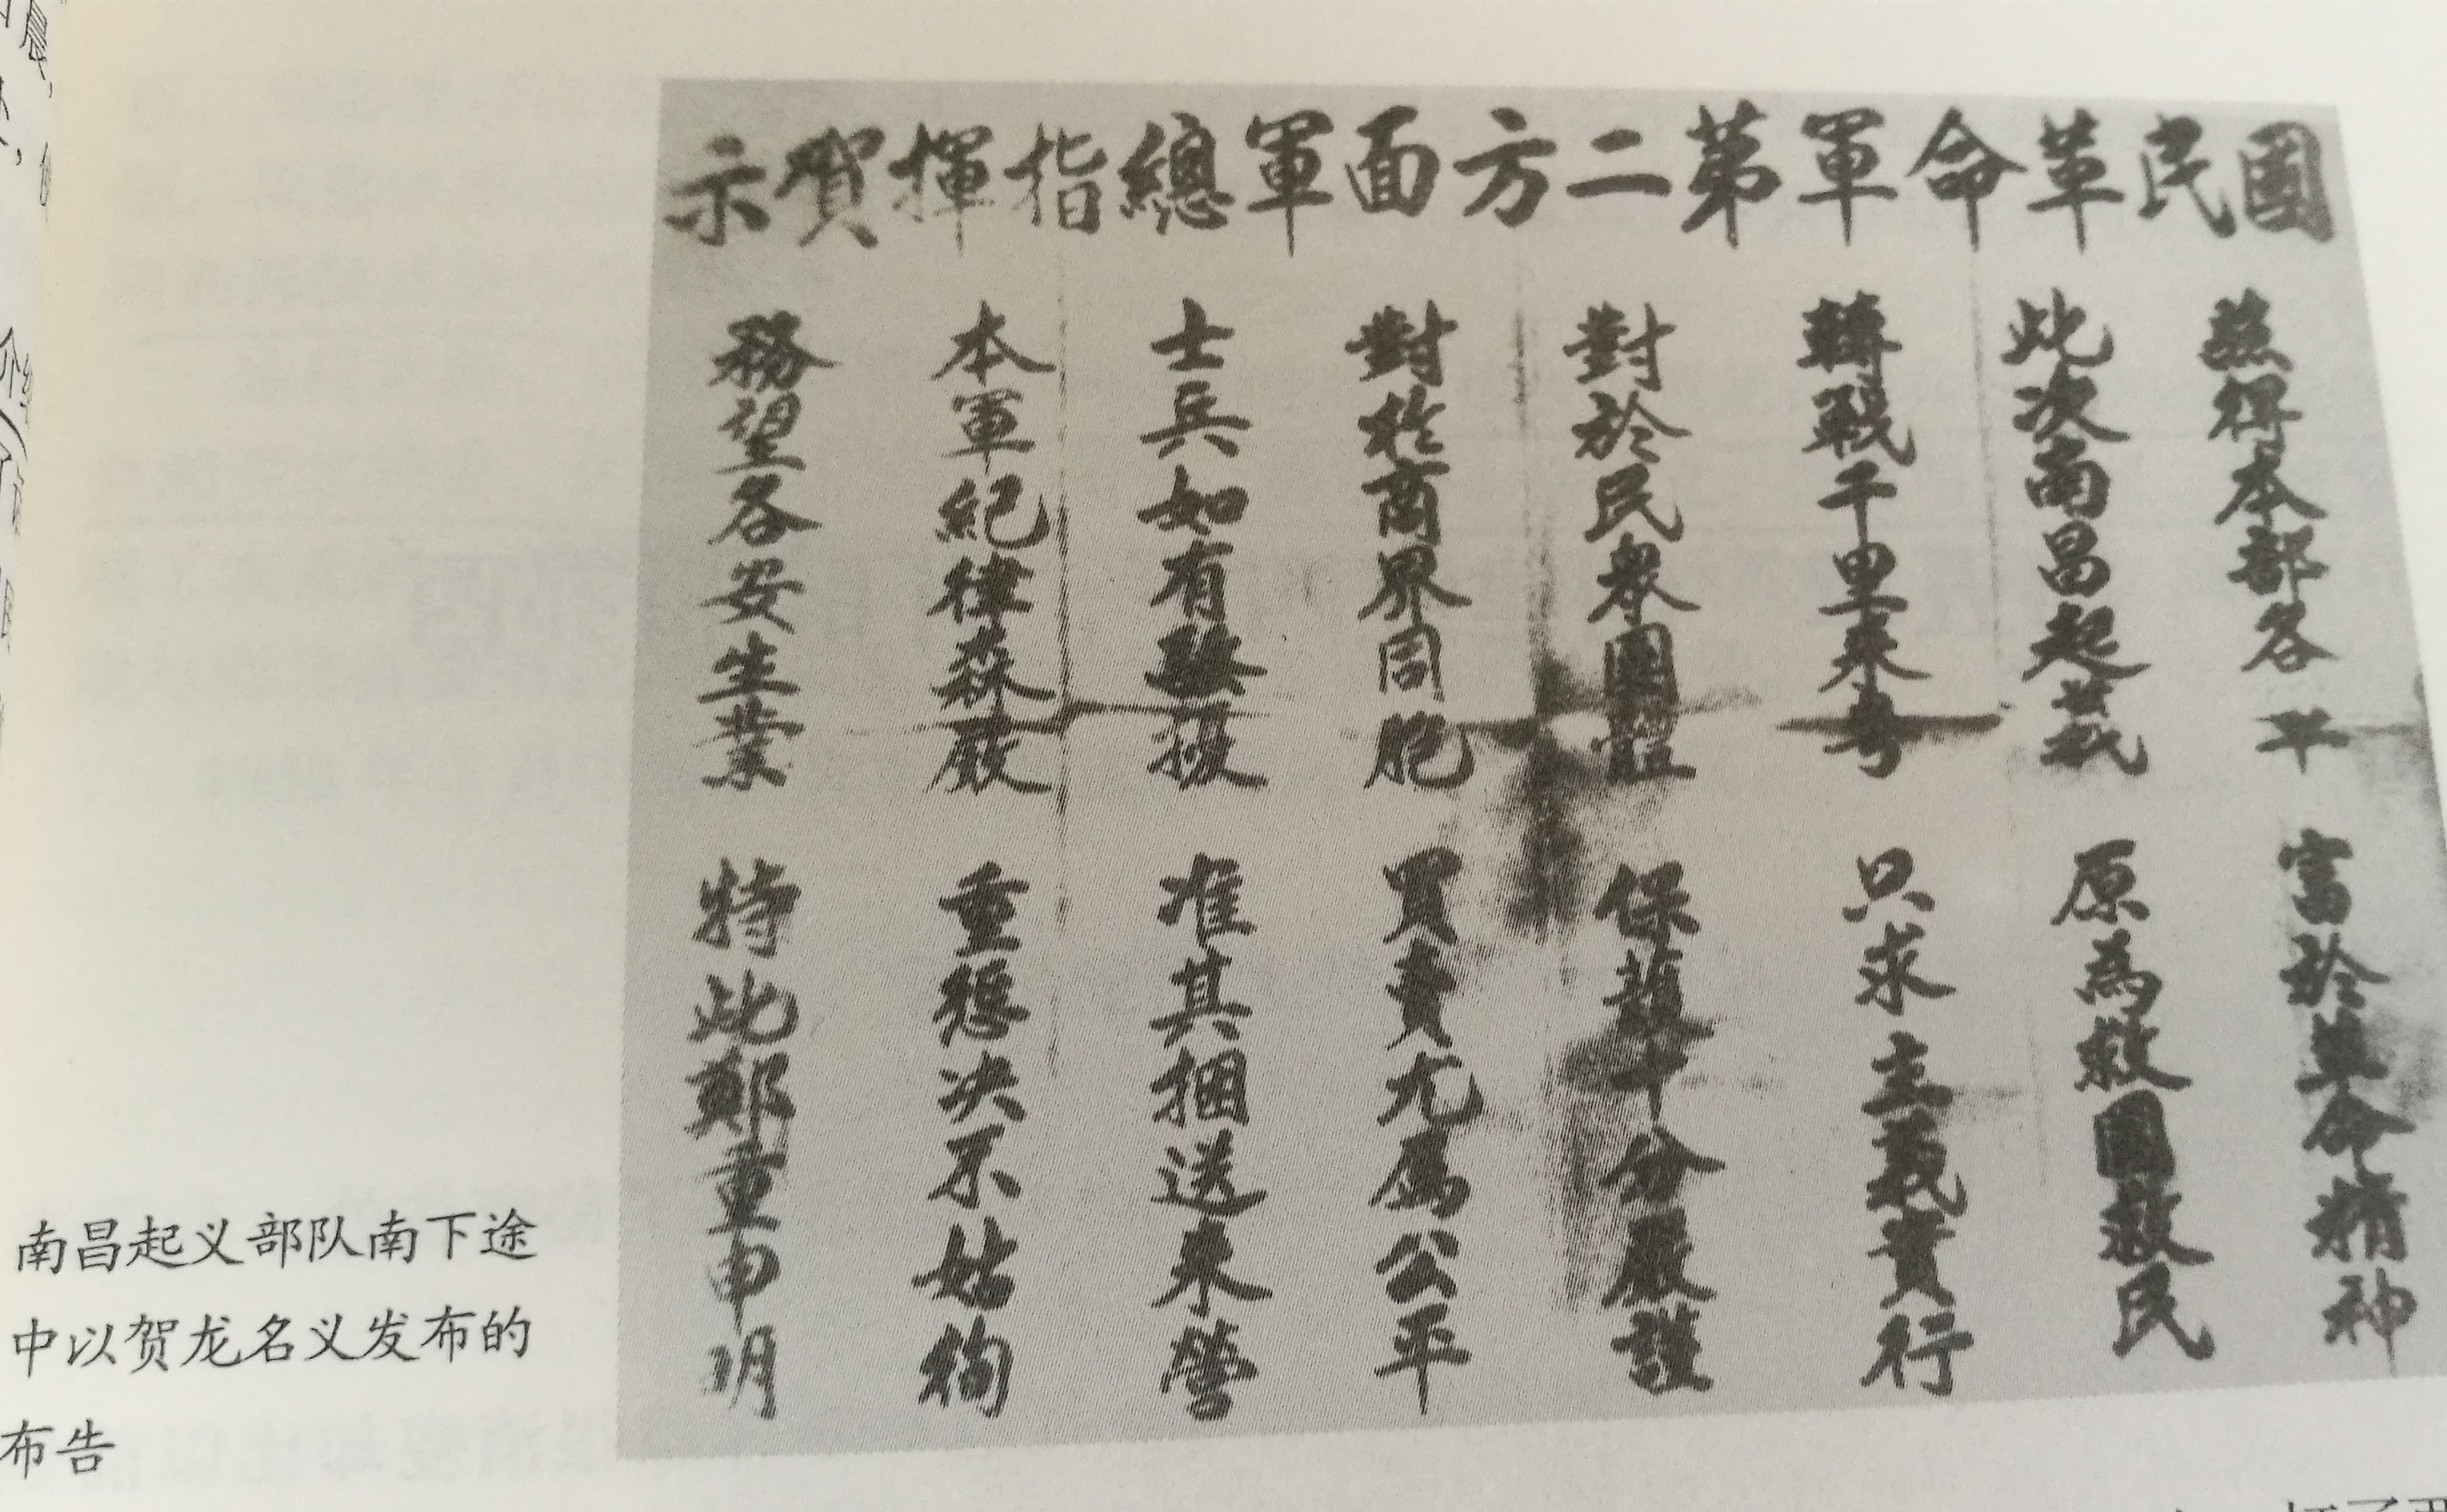 國民革命軍第二方面軍總指揮賀示
照得本部各军 富於革命精神
此次南昌起義 原為救國救民
轉戰千里來粵 只求主義實行
對於民眾團體 保護十分嚴謹
對於商界同胞 買賣尤屬公平
士兵如有騷擾 准其捆送來營
本軍紀律森嚴 重懲决不姑徇
務望各安生業 特此鄭重申明
南昌起义部队南下途
中以贺龙名义发布的
布告